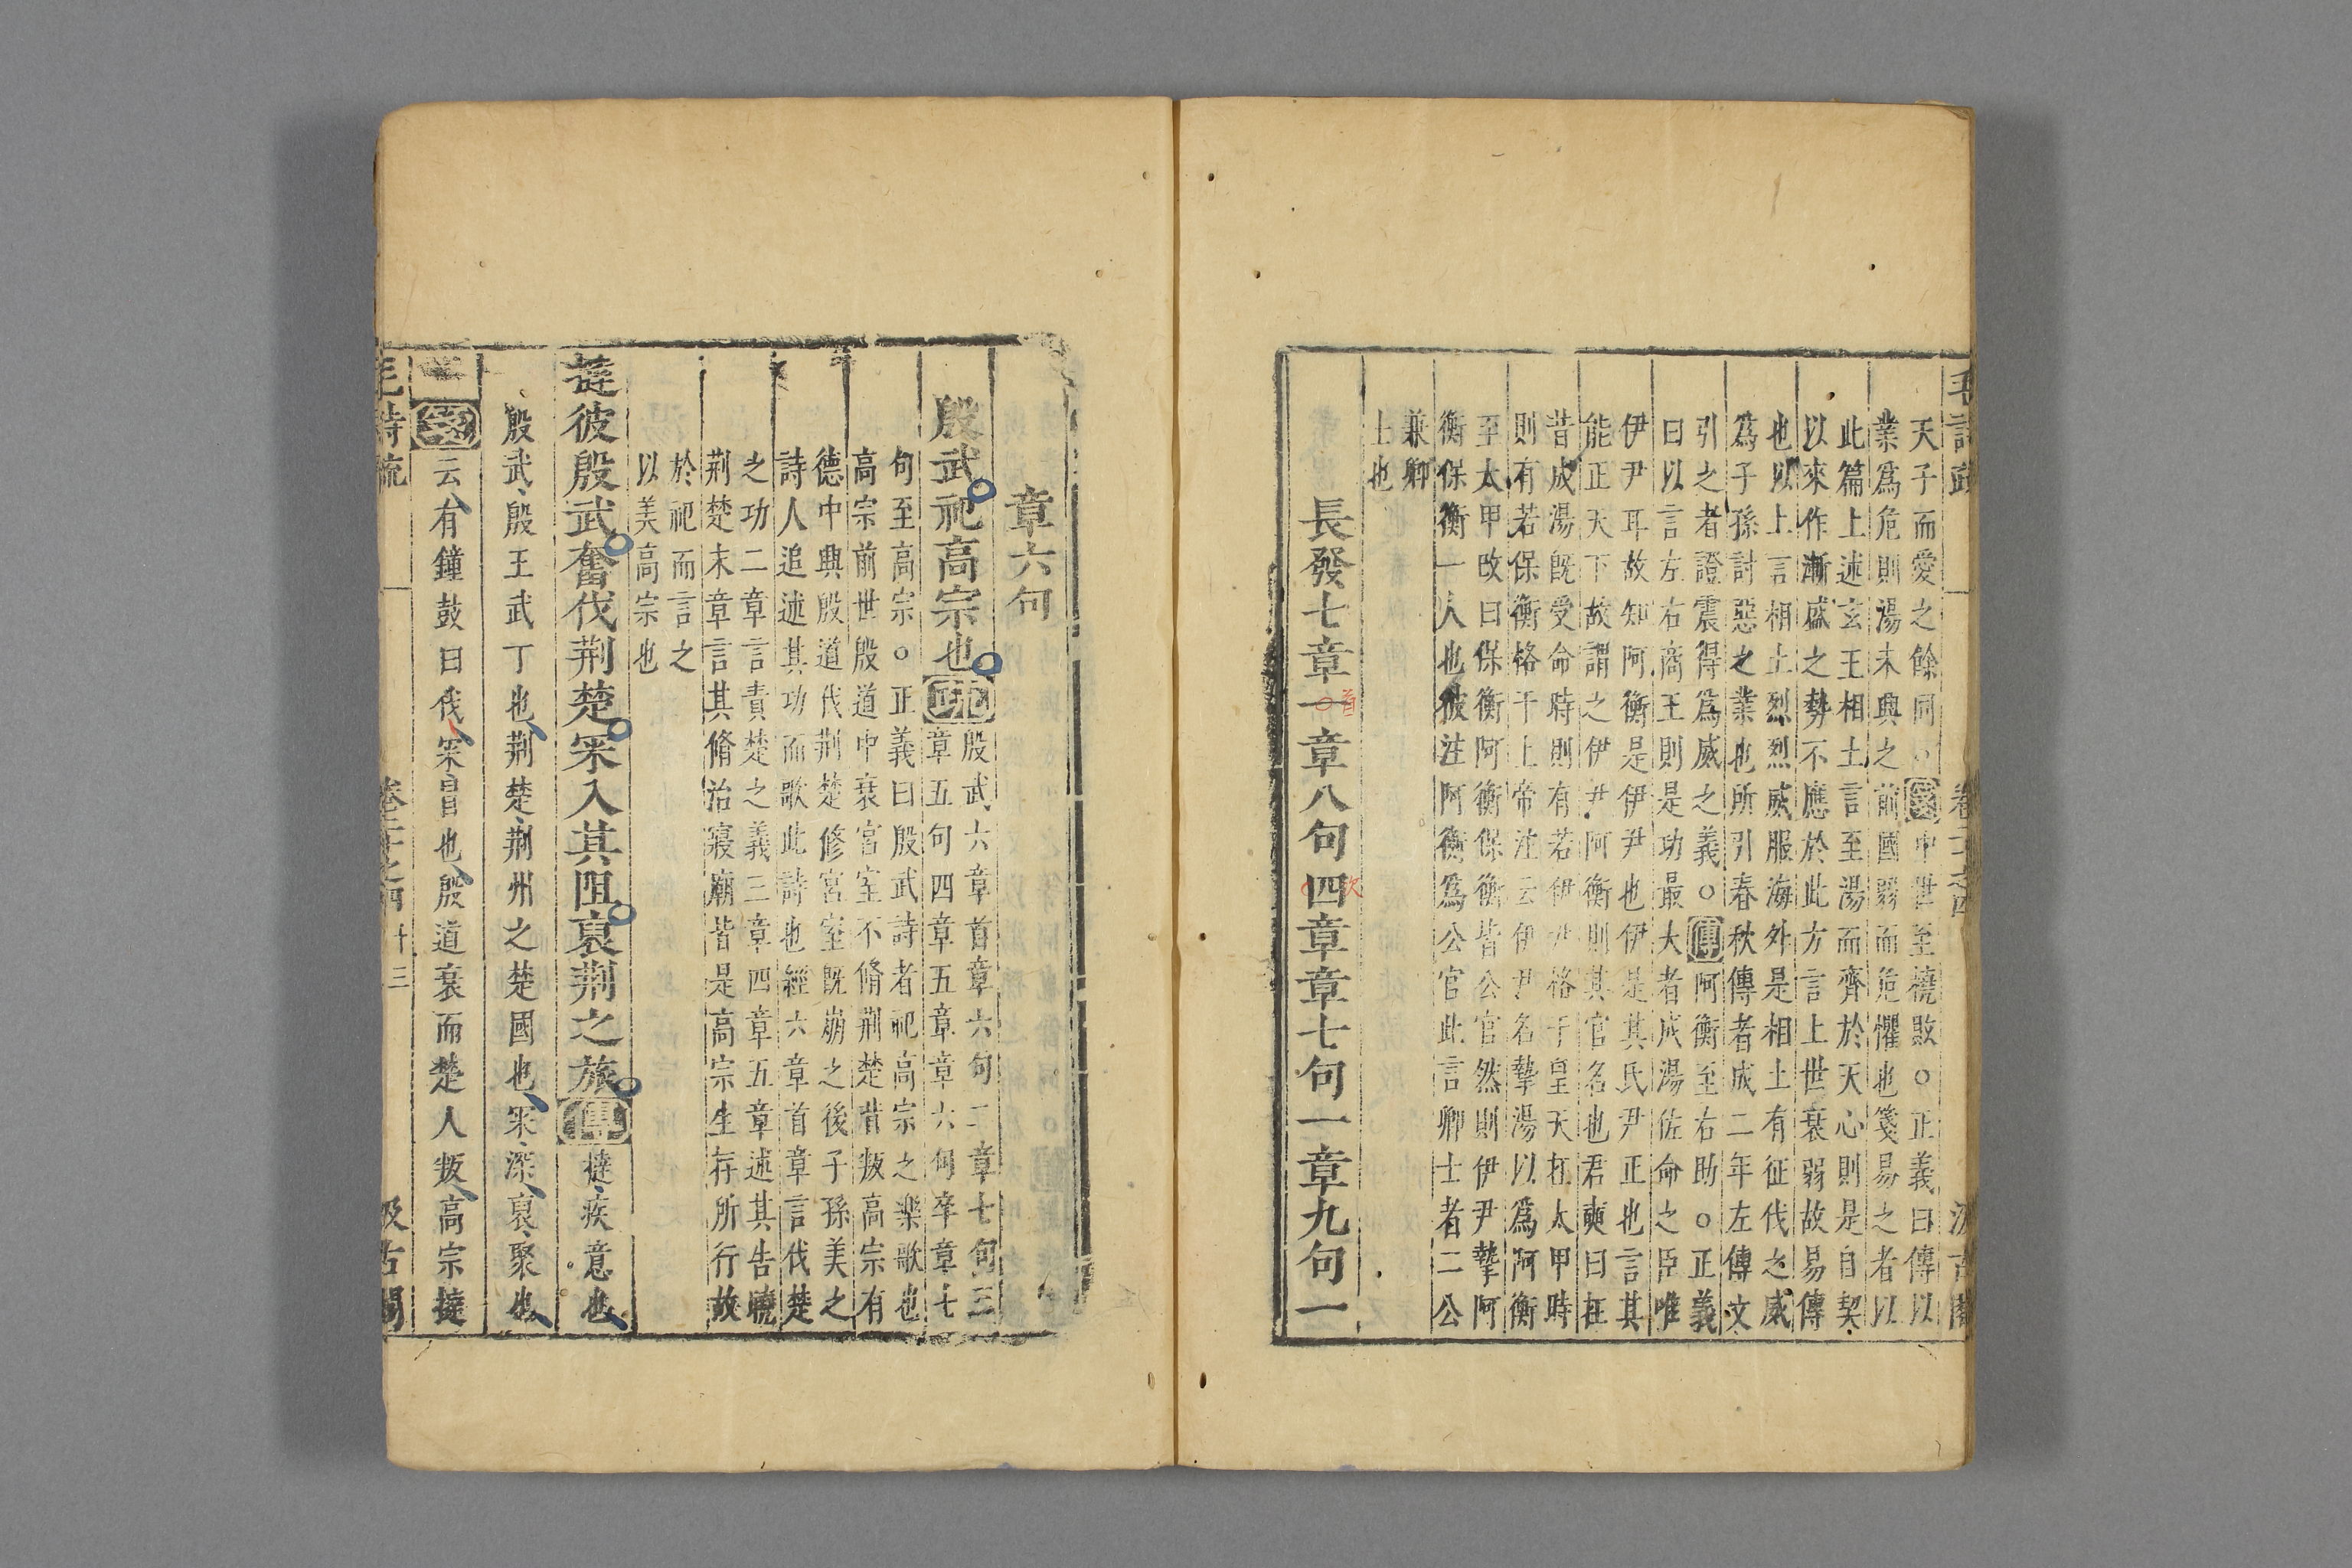 毛詩疏 卷二十之四 汲古閣
天子而愛之餘同○箋中世至撓敗○正義曰傳以
業爲危則湯未興之前國弱而危懼也箋易之者以
此篇上述玄王相土言至湯而齊於天心則是自契
以來作漸盛之勢不應於此方言上世衰弱故易傳
也以上言相土烈烈威服海外是相土有征伐之威
爲子孫討惡之業也所引春秋傳者成二年左傳文
引之者證震得爲威之義○傳阿衡至右助○正義
曰以言左右商王則是功最大者成湯佐命之臣唯
伊尹耳故知阿衡是伊尹也伊是其氏尹正也言其
能正天下故謂之伊尹阿衡則其官名也君奭曰在
昔成湯旣受命時則有若伊尹格于皇天在太甲時
則有若保衡格于上帝注云伊尹名摯湯以爲阿衡
至太甲改曰保衡阿衡保衡皆公官然則伊尹摯阿
衡保衡一人也彼注阿衡爲公官此言卿士者二公
兼卿
士也
長發七章一章八句四章章七句一章九句一
首
次
章六句
殷武祀高宗也疏
殷武六章首章六句二章七句三
章五句四章五章章六句卒章七
句至高宗○正義曰殷武詩者祀高宗之樂歌也
高宗前世殷道中衰宮室不脩荆楚背叛高宗有
德中興殷道伐荆楚修宮室旣崩之後子孫美之
詩人追述其功而歌此詩也經六章首章言伐楚
之功二章言責楚之義三章四章五章述其告曉
荆楚末章言其脩治寢廟皆是高宗生存所行故
於祀而言之
以美高宗也
撻彼殷武奮伐荆楚罙入其阻裒荆之旅傳撻疾意也
殷武殷王武丁也荆楚荆州之楚國也罙深裒聚也
箋云有鐘鼓曰伐罙冒也殷道衰而楚人叛高宗撻
毛詩疏 卷二十之四 十三 汲古閣